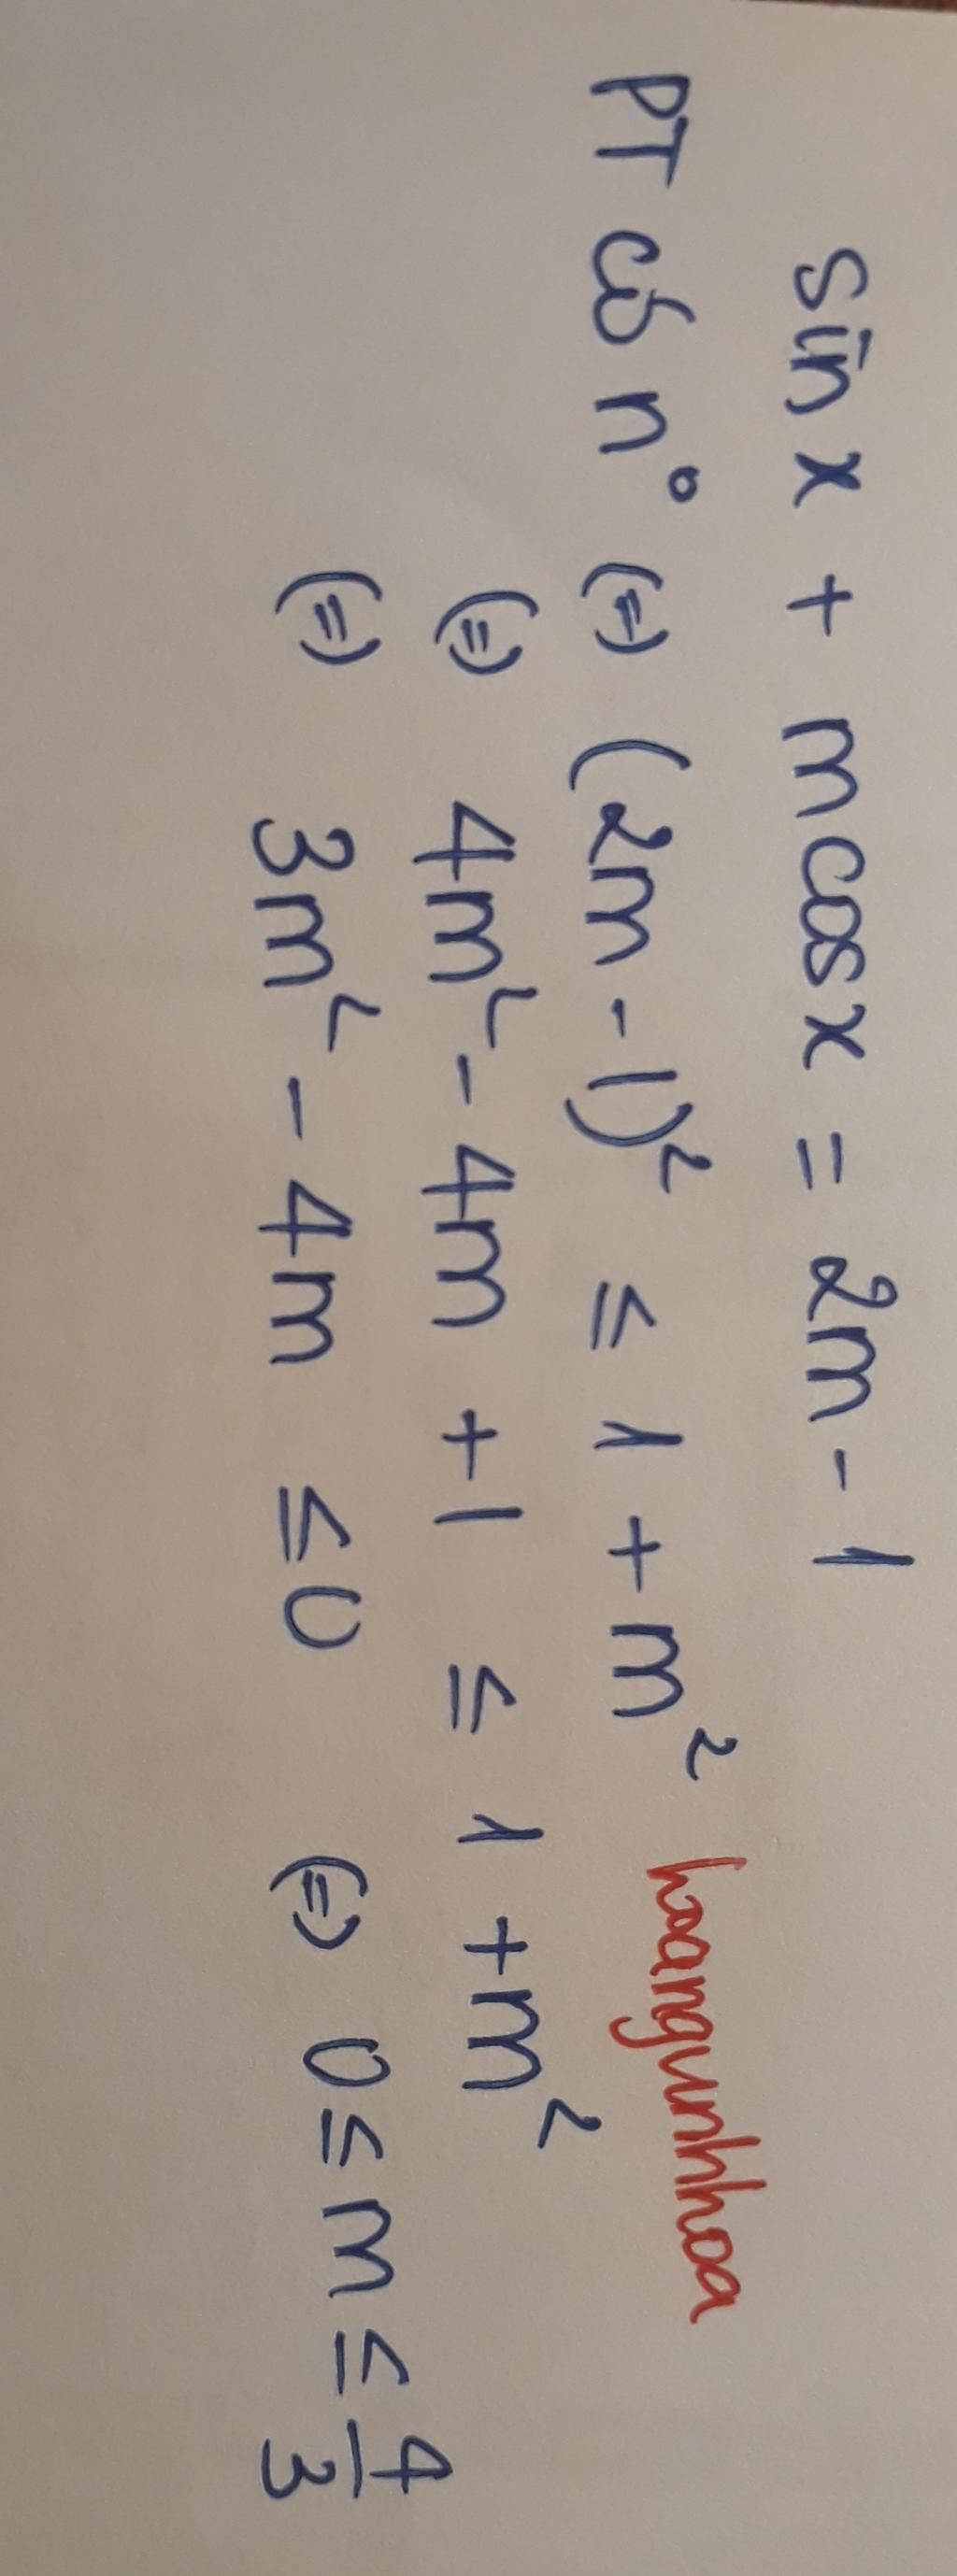 sin x + m cos x = 2m - 1
PT có n° (=) (2m - 1)² ≤ 1 + m²
hoangunhhoa
(=) 4m² - 4m + 1 ≤ 1 + m²
(=) 3m² - 4m ≤ 0 (=) 0 ≤ m ≤ 4/3